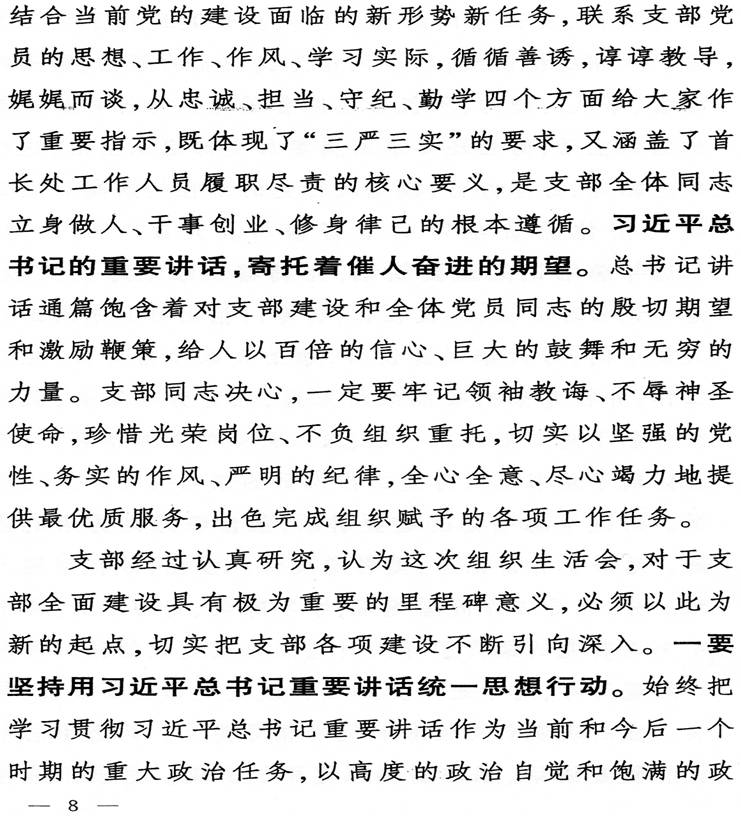 结合当前党的建设面临的新形势新任务,联系支部党
员的思想、工作、作风、学习实际,循循善诱,谆谆教导,
娓娓而谈,从忠诚、担当、守纪、勤学四个方面给大家作
了重要指示,既体现了“三严三实”的要求,又涵盖了首
长处工作人员履职尽责的核心要义,是支部全体同志
立身做人、干事创业、修身律己的根本遵循。习近平总
书记的重要讲话,寄托着催人奋进的期望。总书记讲
话通篇饱含着对支部建设和全体党员同志的殷切期望
和激励鞭策,给人以百倍的信心、巨大的鼓舞和无穷的
力量。支部同志决心,一定要牢记领袖教诲、不辱神圣
使命,珍惜光荣岗位、不负组织重托,切实以坚强的党
性、务实的作风、严明的纪律,全心全意、尽心竭力地提
供最优质服务,出色完成组织赋予的各项工作任务。
支部经过认真研究,认为这次组织生活会,对于支
部全面建设具有极为重要的里程碑意义,必须以此为
新的起点,切实把支部各项建设不断引向深入。一要
坚持用习近平总书记重要讲话统一思想行动。始终把
学习贯彻习近平总书记重要讲话作为当前和今后一个
时期的重大政治任务,以高度的政治自觉和饱满的政
— 8 —